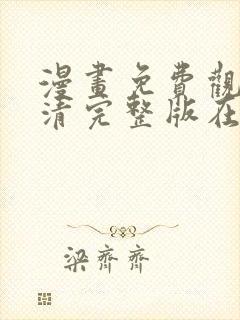 漫畫免費觀
清完整版在
梁齊齊